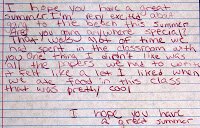 I hope you have a great
summer I'm very excited about
going to the beach this summer
Are you going anywhere special?
That was a lot of time we
had spent in the classroom with
you One thing I didn't like was
all the papers we had to do
it felt like a lot I liked when
we ate food in this class
that was pretty cool
I hope you have
a great summer